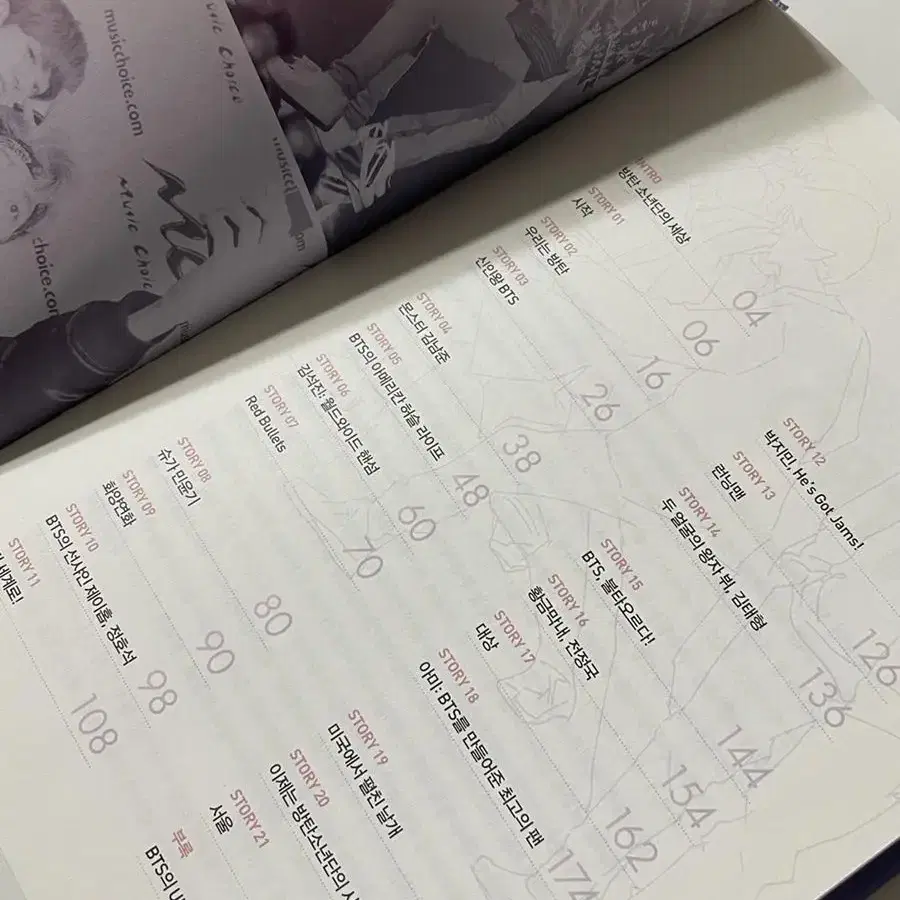 musicchoice.com
Music Choice
Music Choice
choice.com
INTRO
방탄소년단의 세상
04
STORY 01
시작
06
STORY 02
우리는 방탄
16
STORY 03
신인왕 BTS
26
STORY 04
몬스터 김남준
38
STORY 05
BTS의 아메리칸 허슬 라이프
48
STORY 06
김석진: 월드와이드 핸섬
60
STORY 07
Red Bullets
70
STORY 08
슈가 민윤기
80
STORY 09
화양연화
90
STORY 10
BTS의 선샤인 제이홉, 정호석
98
STORY 11
세계로!
108
STORY 12
박지민, He's Got Jams!
126
STORY 13
런닝맨
STORY 14
두 얼굴의 왕자 뷔, 김태형
136
STORY 15
BTS, 불타오르다!
144
STORY 16
황금막내, 전정국
154
STORY 17
대상
162
STORY 18
아미: BTS를 만들어준 최고의 팬
174
STORY 19
미국에서 펼친 날개
STORY 20
이제는 방탄소년단의
STORY 21
서울
부록
BTS의